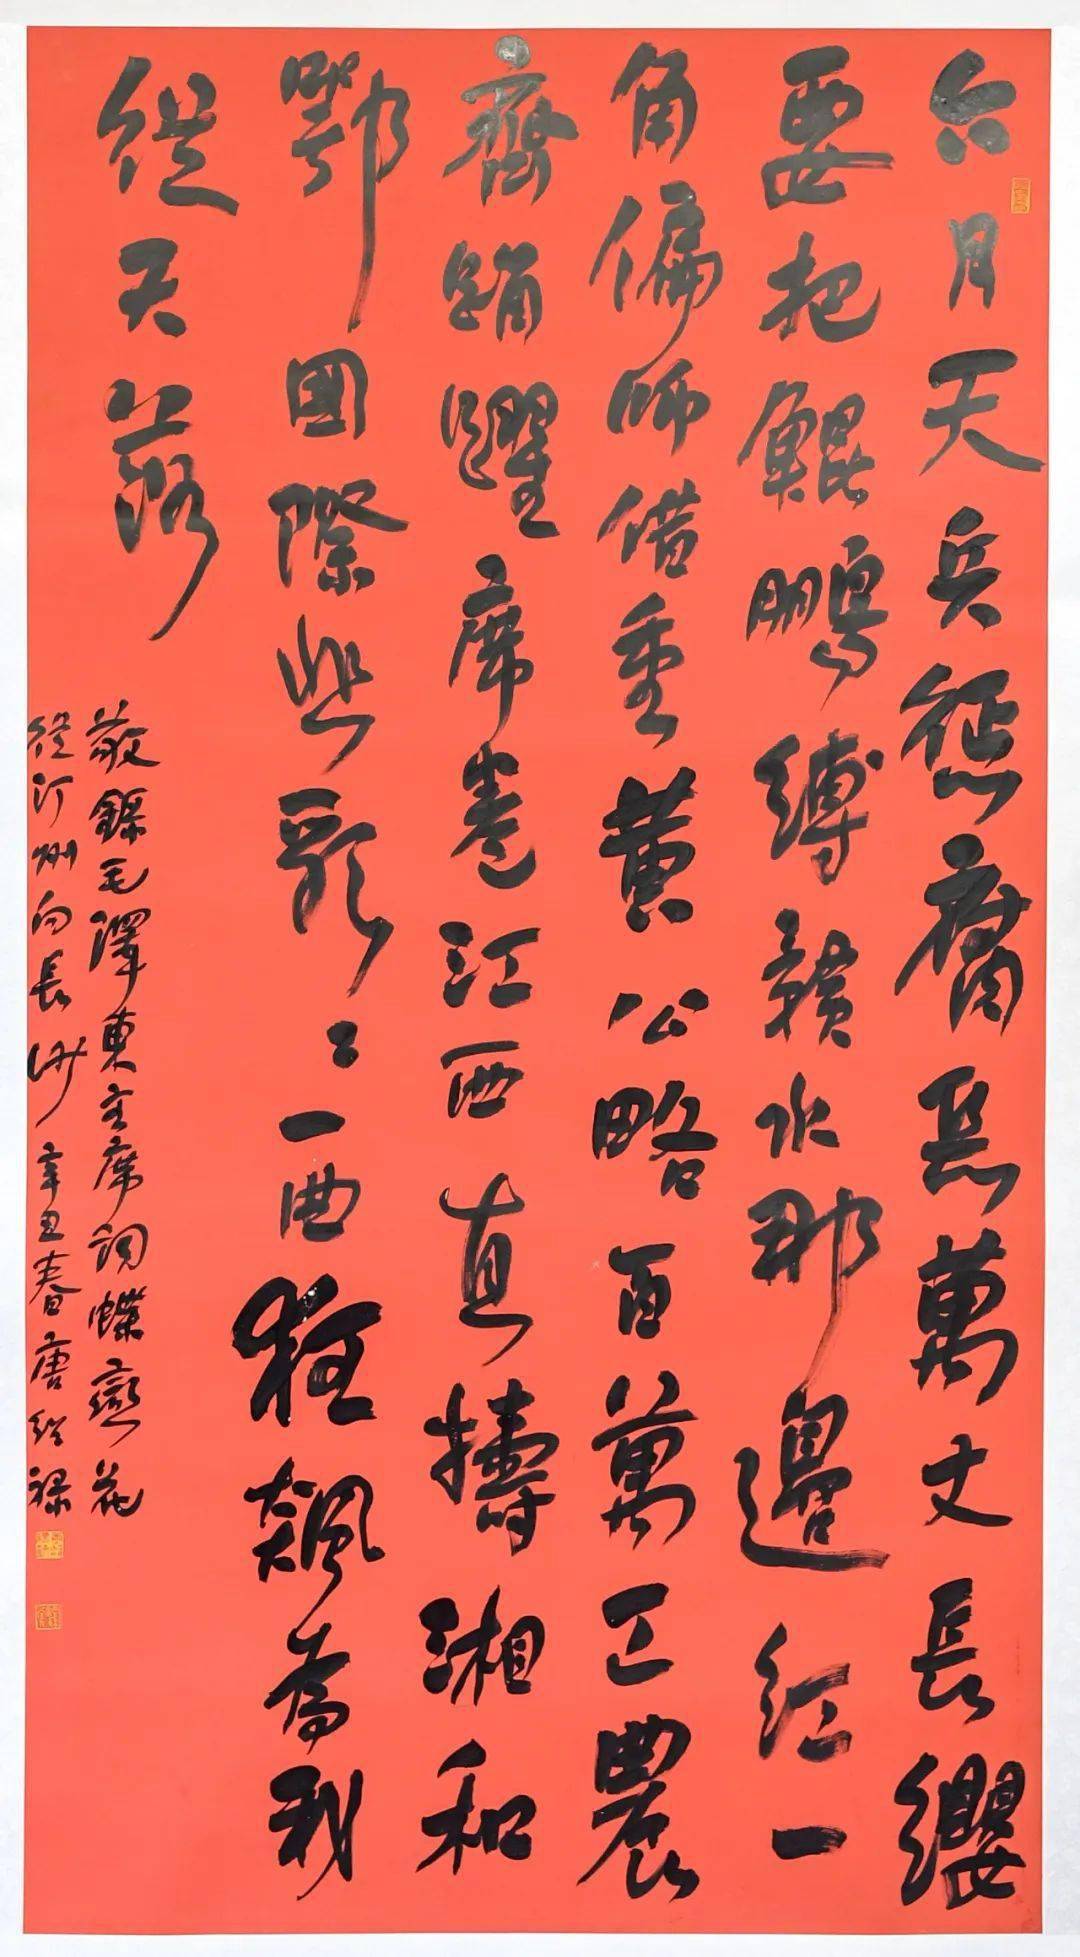 六月天兵惩腐惡萬丈長纓
要把鯤鵬縛贛水那邊紅一
角偏師借重黃公略百萬工農
齊踴躍席卷江西直擣湘和
鄂國際悲歌々一曲狂飆為我
從天落
敬錄毛澤東主席詞蝶戀花
從汀州向長沙辛丑春唐祿